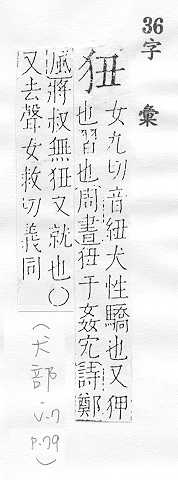 36字彙
狃
女九切音紐犬性驕也又狎
也習也周書狃于姦宄詩鄭
風將叔無狃又就也〇
又去聲女救切義同
(犬部 v.7 P.79)